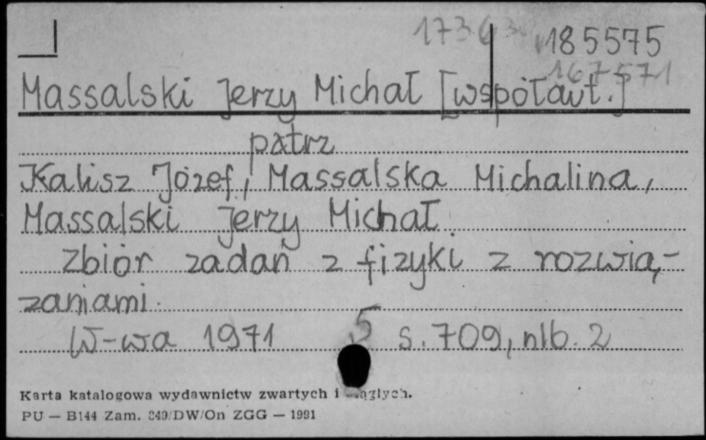 185575
167571
Massalski Jerzy Michał [współaut.]
patrz
Kalisz Józef, Massalska Michalina,
Massalski Jerzy Michał.
Zbiór zadań z fizyki z rozwią-
zaniami.
W-wa 1971 5 s. 709, nlb. 2
Karta katalogowa wydawnictw zwartych i ciągłych.
PU — B144 Zam. 349/DW/On ZGG — 1991